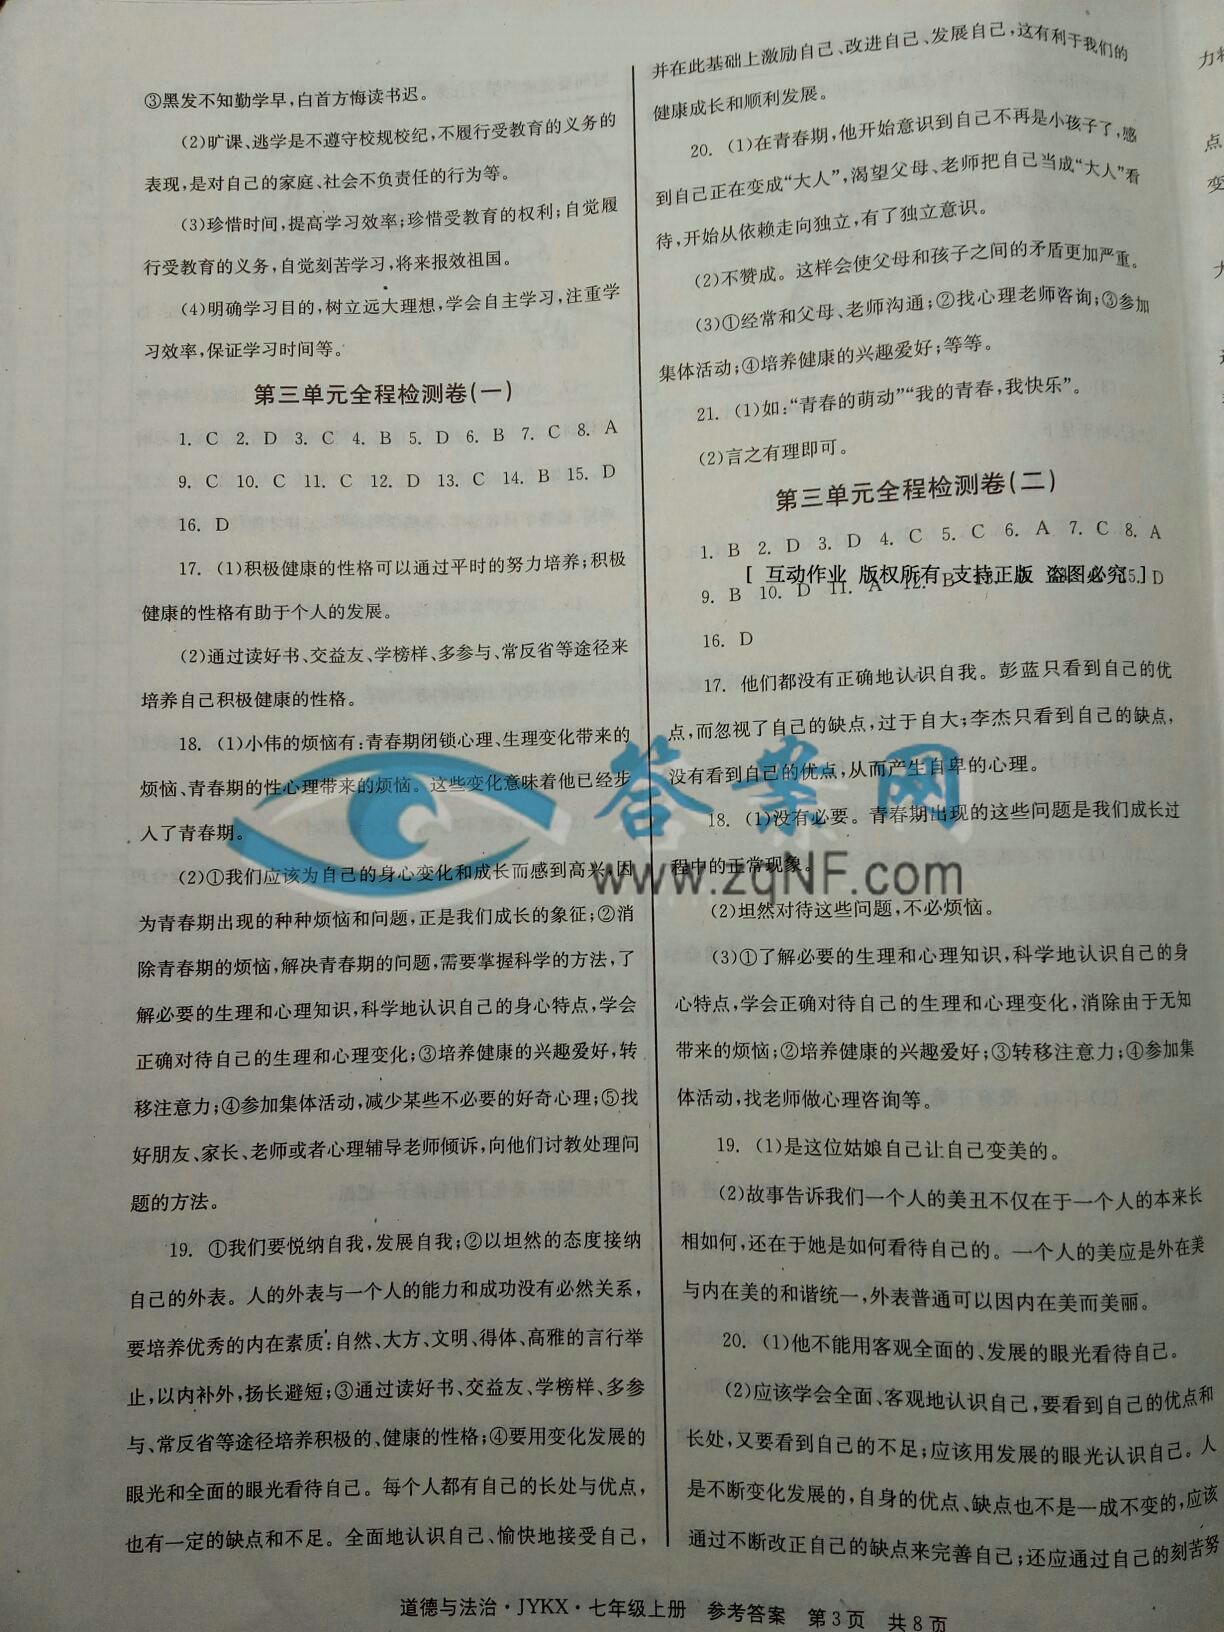 ③黑发不知勤学早,白首方悔读书迟。
(2)旷课、逃学是不遵守校规校纪,不履行受教育的义务的
表现,是对自己的家庭、社会不负责任的行为等。
(3)珍惜时间,提高学习效率;珍惜受教育的权利;自觉履
行受教育的义务,自觉刻苦学习,将来报效祖国。
(4)明确学习目的,树立远大理想,学会自主学习,注重学
习效率,保证学习时间等。
第三单元全程检测卷(一)
1. C 2. D 3. C 4. B 5. D 6. B 7. C 8. A
9. C 10. C 11. C 12. D 13. C 14. B 15. D
16. D
17. (1)积极健康的性格可以通过平时的努力培养;积极
健康的性格有助于个人的发展。
(2)通过读好书、交益友、学榜样、多参与、常反省等途径来
培养自己积极健康的性格。
18. (1)小伟的烦恼有:青春期闭锁心理、生理变化带来的
烦恼、青春期的性心理带来的烦恼。这些变化意味着他已经步
入了青春期。
(2)①我们应该为自己的身心变化和成长而感到高兴,因
为青春期出现的种种烦恼和问题,正是我们成长的象征;②消
除青春期的烦恼,解决青春期的问题,需要掌握科学的方法,了
解必要的生理和心理知识,科学地认识自己的身心特点,学会
正确对待自己的生理和心理变化;③培养健康的兴趣爱好,转
移注意力;④参加集体活动,减少某些不必要的好奇心理;⑤找
好朋友、家长、老师或者心理辅导老师倾诉,向他们讨教处理问
题的方法。
19. ①我们要悦纳自我,发展自我;②以坦然的态度接纳
自己的外表。人的外表与一个人的能力和成功没有必然关系,
要培养优秀的内在素质:自然、大方、文明、得体、高雅的言行举
止,以内补外,扬长避短;③通过读好书、交益友、学榜样、多参
与、常反省等途径培养积极的、健康的性格;④要用变化发展的
眼光和全面的眼光看待自己。每个人都有自己的长处与优点,
也有一定的缺点和不足。全面地认识自己、愉快地接受自己,
并在此基础上激励自己、改进自己、发展自己,这有利于我们的
健康成长和顺利发展。
20. (1)在青春期,他开始意识到自己不再是小孩子了,感
到自己正在变成“大人”,渴望父母、老师把自己当成“大人”看
待,开始从依赖走向独立,有了独立意识。
(2)不赞成。这样会使父母和孩子之间的矛盾更加严重。
(3)①经常和父母、老师沟通;②找心理老师咨询;③参加
集体活动;④培养健康的兴趣爱好;等等。
21. (1)如:“青春的萌动”“我的青春,我快乐”。
(2)言之有理即可。
第三单元全程检测卷(二)
1. B 2. D 3. D 4. C 5. C 6. A 7. C 8. A
[ 互动作业 版权所有 支持正版 盗图必究 ]
9. B 10. D 11. A 12. B 15. D
16. D
17. 他们都没有正确地认识自我。彭蓝只看到自己的优
点,而忽视了自己的缺点,过于自大;李杰只看到自己的缺点,
没有看到自己的优点,从而产生自卑的心理。
18. (1)没有必要。青春期出现的这些问题是我们成长过
程中的正常现象。
(2)坦然对待这些问题,不必烦恼。
(3)①了解必要的生理和心理知识,科学地认识自己的身
心特点,学会正确对待自己的生理和心理变化,消除由于无知
带来的烦恼;②培养健康的兴趣爱好;③转移注意力;④参加集
体活动,找老师做心理咨询等。
19. (1)是这位姑娘自己让自己变美的。
(2)故事告诉我们一个人的美丑不仅在于一个人的本来长
相如何,还在于她是如何看待自己的。一个人的美应是外在美
与内在美的和谐统一,外表普通可以因内在美而美丽。
20. (1)他不能用客观全面的、发展的眼光看待自己。
(2)应该学会全面、客观地认识自己,要看到自己的优点和
长处,又要看到自己的不足;应该用发展的眼光认识自己。人
是不断变化发展的,自身的优点、缺点也不是一成不变的,应该
通过不断改正自己的缺点来完善自己;还应通过自己的刻苦努
答案网
www.zqNF.com
道德与法治·JYKX·七年级上册 参考答案 第3页 共8页
力
点
变
大